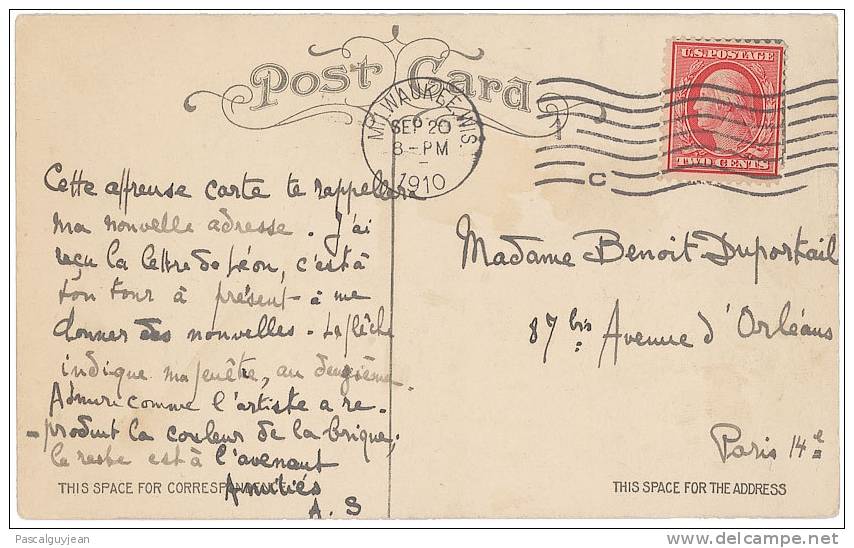 Post Card
U.S. POSTAGE
TWO CENTS
MILWAUKEE, WIS.
SEP 20
8-PM
1910
C
Cette affreuse carte te rappellera
ma nouvelle adresse. J'ai
reçu la lettre de Léon, c'est à
ton tour à présent à me
donner des nouvelles. La flêche
indique ma fenêtre, au deuxième.
Admire comme l'artiste a re-
-produit la couleur de la brique;
le reste est à l'avenant
Amitiés
A. S
Madame Benoit Duportail
87 bis Avenue d'Orléans
Paris 14e
THIS SPACE FOR CORRESPONDENCE
THIS SPACE FOR THE ADDRESS
Pascalguyjean
delcampe.net